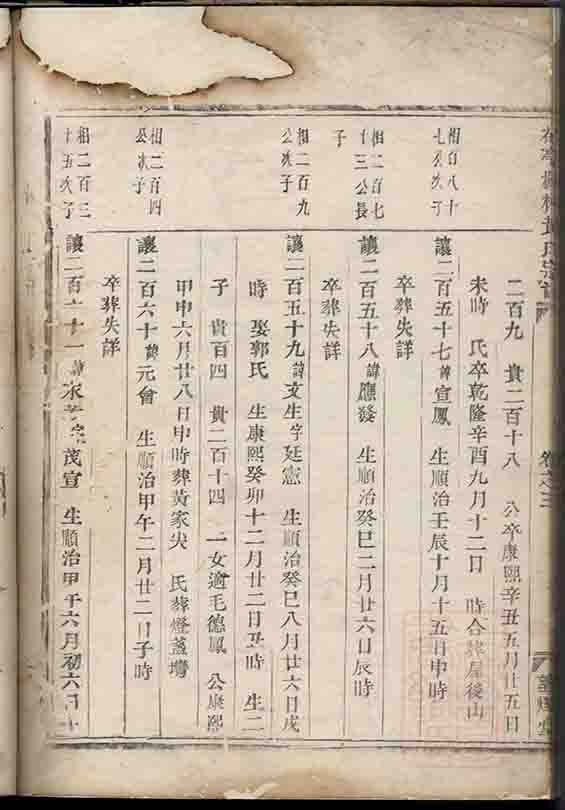 氏宗
卷之三
二百九 貴二百十八 公卒康熙辛丑五月廿五日
未時 氏卒乾隆辛酉九月十二日 時合葬屋後山
相百八十
七公次子
讓二百五十七諱宣鳳 生順治壬辰十月十五日申時
卒葬失詳
相二百七
十三公長
子
讓二百五十八諱應發 生順治癸巳二月廿六日辰時
卒葬失詳
相二百九
公次子
讓二百五十九諱文生字廷憲 生順治癸巳八月廿六日戌
時 娶郭氏 生康熙癸卯十二月廿二日丑時 生二
子 貴百四 貴二百十四 一女適毛德鳳 公康熙
甲申六月廿八日申時葬黃家尖 氏葬燈盞壪
相二百四
公次子
讓二百六十諱元會 生順治甲午二月廿二日子時
卒葬失詳
相二百三
十五次子
讓二百六十一諱永 字茂宣 生順治甲午六月初六日